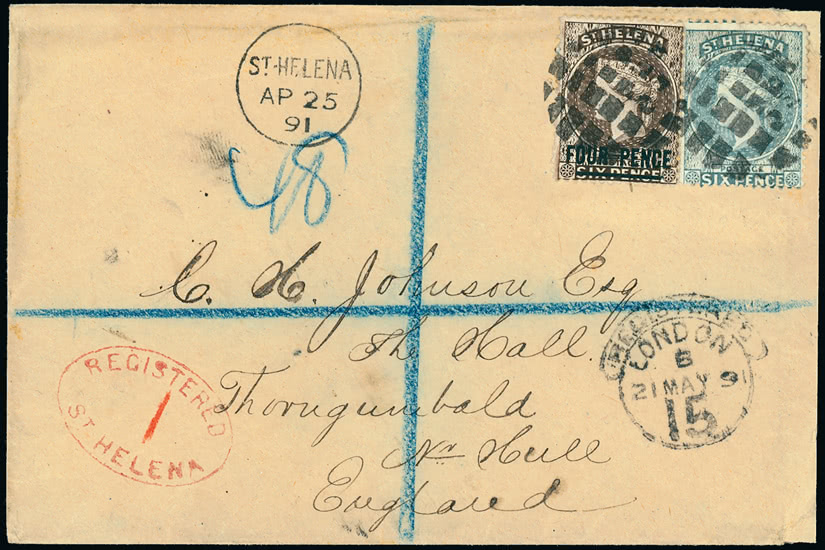 ST. HELENA
AP 25
91
48
ST HELENA
FOUR PENCE
SIX PENCE
ST HELENA
POSTAGE
SIX PENCE
C. H. Johnson Esq
The Hall
Thorngumbald
Nr Hull
England
REGISTERED
1
ST HELENA
LONDON
B
21 MAY 91
15